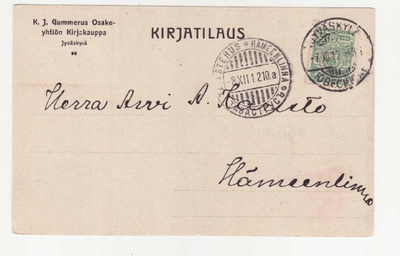 K. J. Gummerus Osake-
yhtiön Kirjakauppa
Jyväskyä
KIRJATILAUS
JYVÄSKYLÄ
TAVASTEHUS HÄMEENLINNA
8.XII.12.10.a
ТАВАСТГУСЪ
Herra Arvi A. Karisto
Hämeenlinna